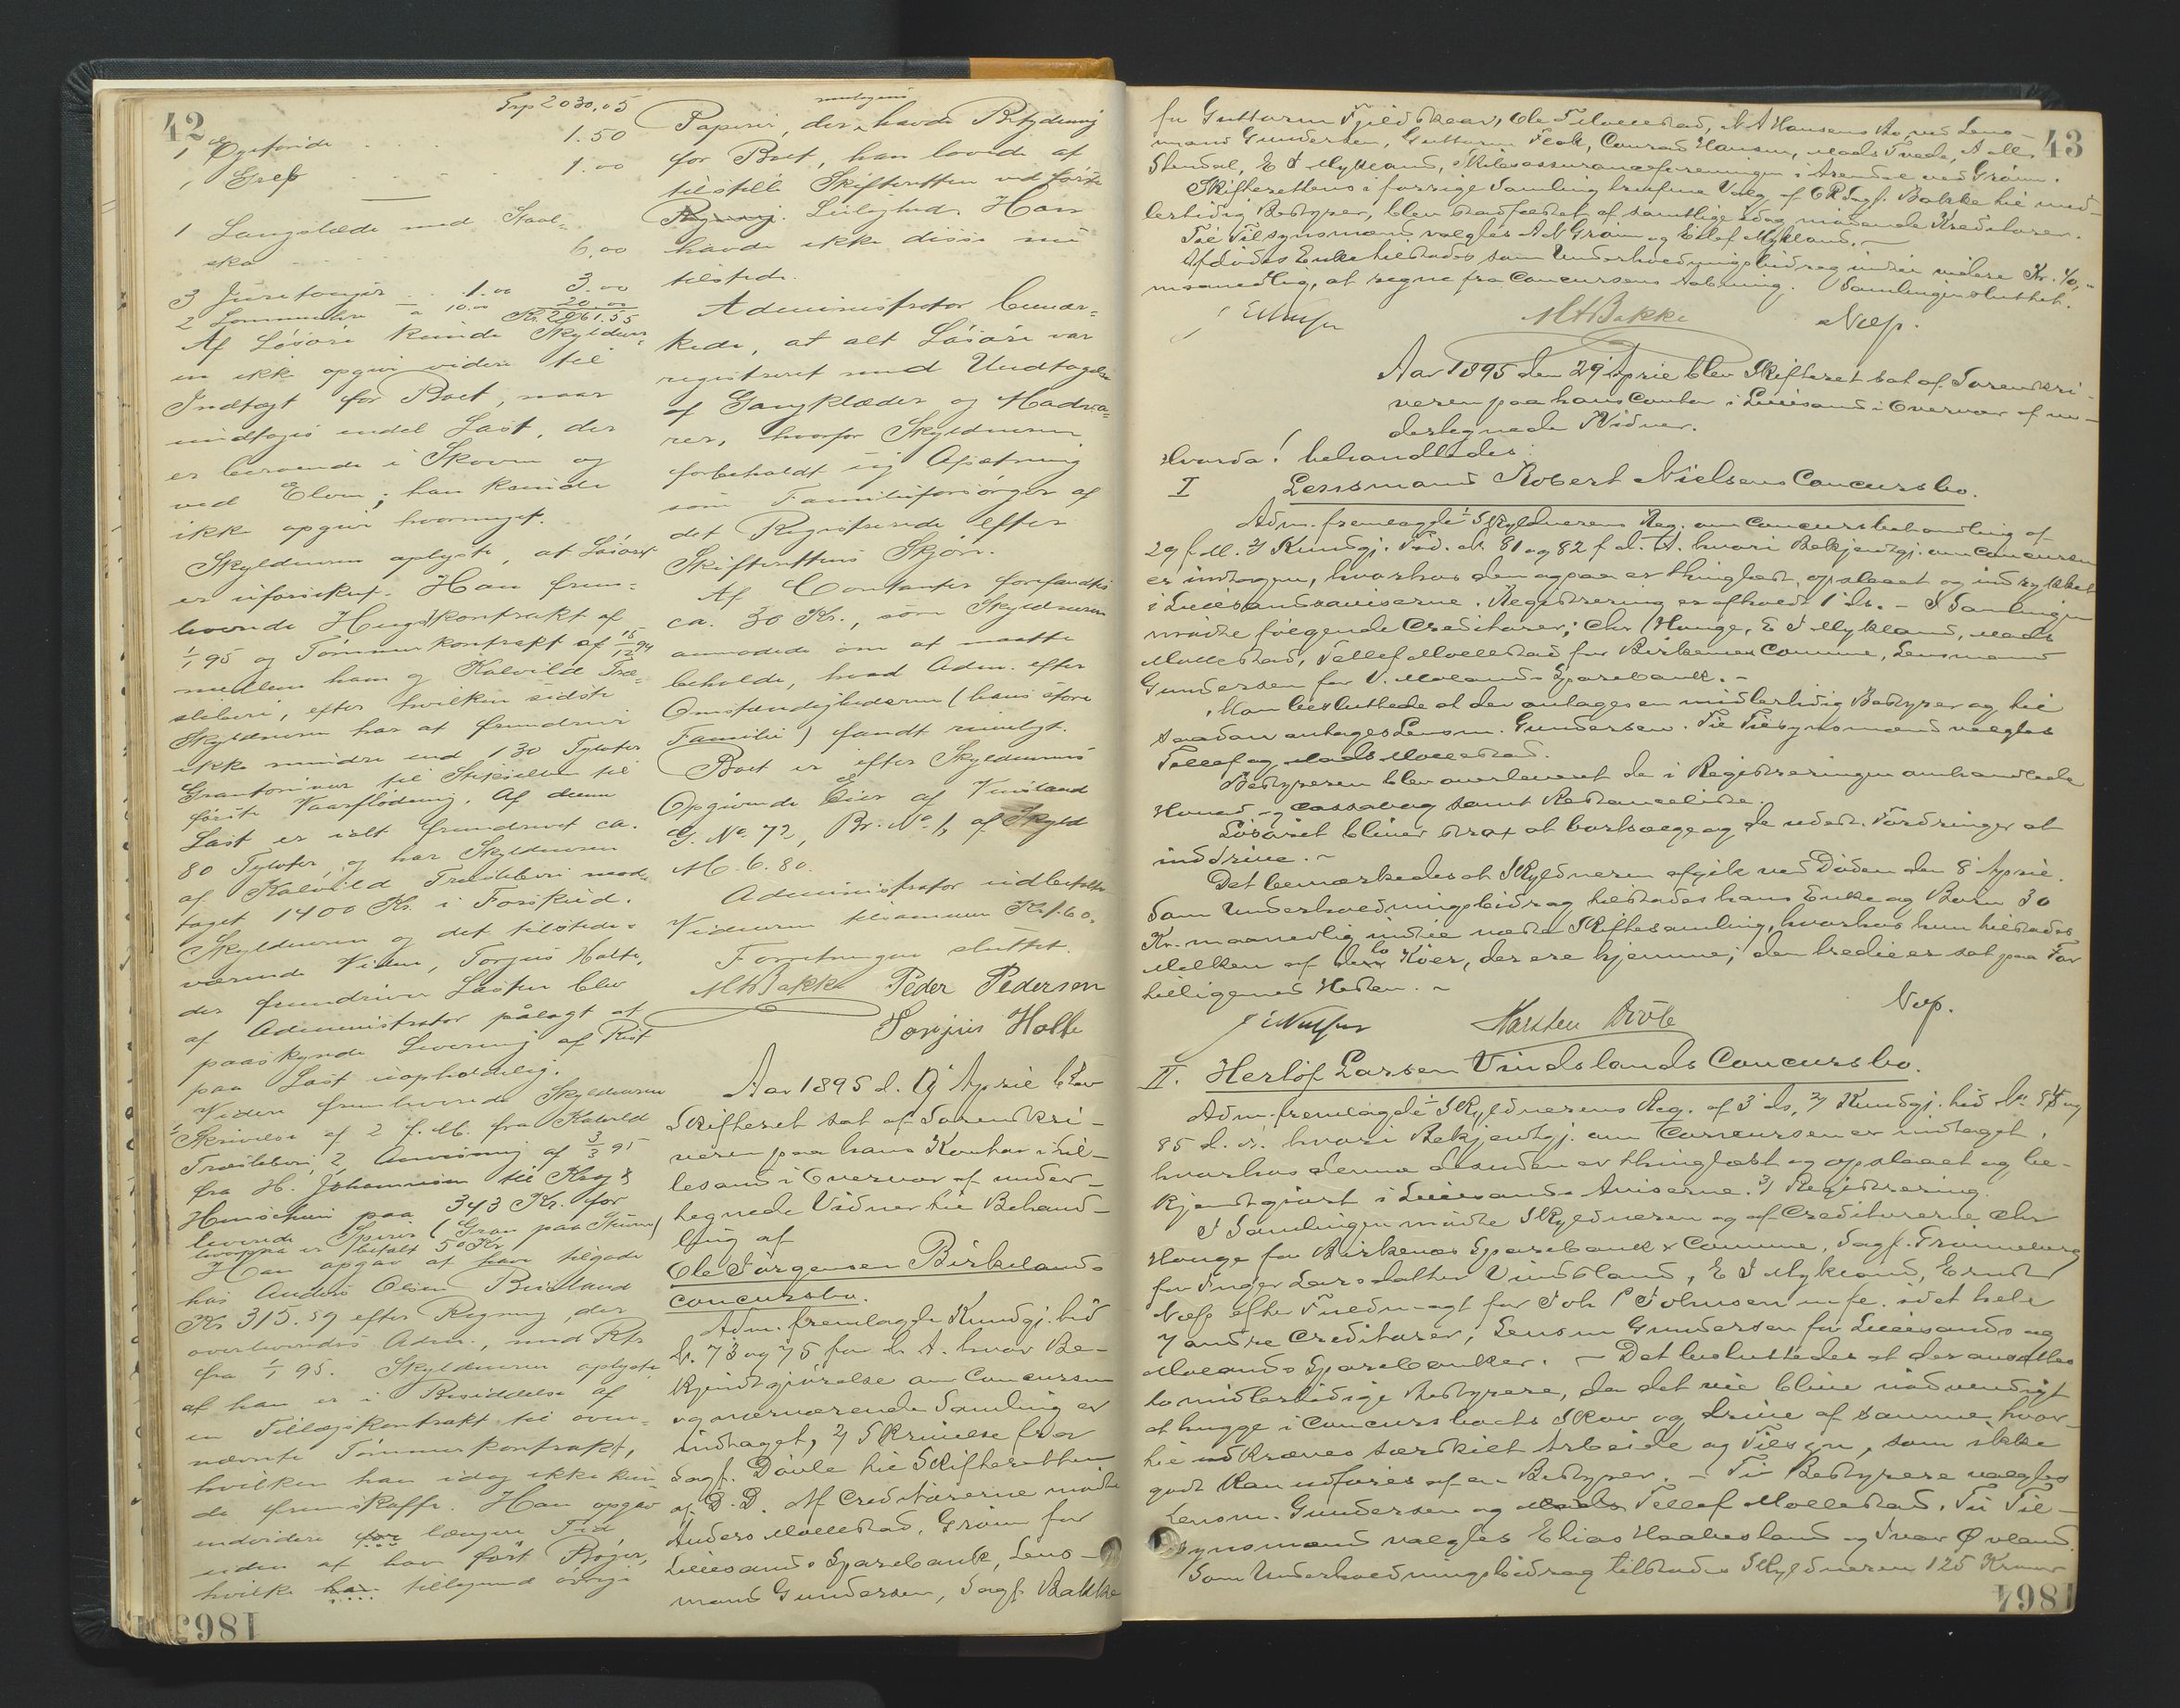 42
Trsp 2030.05
1 Øgeforide . . . 1.50
1 Greb . . . 1.00
1 Langslæde med Staal=
sko . . . 6.00
3 Juretouger . . 1.00 3.00
2 Lommeuhre — a 10.00 20.00
Kr. 2061.55
Af Løsøre kunde Skyldner=
en ikke opgive videre til
Indtægt for Boet, naar
undtages endel Last, der
er beroende i Skoven og
ved Elven; han kunde
ikke opgive hvormeget.
Skyldneren oplyste, at Løsøret
er uforsikret. Han frem=
leverede Hugstkontrakt af
1/1 95 og Tømmerkontrakt af 15/12 94
mellem ham og Kalvild Træ=
sliberi, efter hvilken sidste
Skyldneren har at fremdrive
ikke mindre end 130 Tylvter
Grantømmer til Stikielen til
første Vaarflødning. Af denne
Last er ialt fremdrevet ca.
80 Tylvter, og har Skyldneren
af Kalvild Træsliberi mod=
taget 1400 Kr. i Forskud.
Skyldneren og det tilstede=
værende Vidne, Torjus Holte,
der fremdriver Lasten blev
af Administrator pålagt at
paaskynde Levering af Rest
paa Last uopholdelig.
Videre fremleverede Skyldneren
1 Skrivelse af 2 f. M. fra Kalvild
Træsliberi, 2 Anvisning af 3/3 95
fra H. Johannesen til Kløg &
Henschien paa 343 Kr. for
leverede Spirer (Gran paa Stuven)
hvorpaa er betalt 50 Kr.
Han opgav at have tilgode
hos Anders Olsen Birkeland
Kr 315.59 efter Regning, der
overleveredes Adm., med Rtr
fra 1/1 95. Skyldneren oplyste
at han er i Besiddelse af
en Tillægskontrakt til oven=
nævnte Tømmerkontrakt,
hvilken han idag ikke kun
de fremskaffe. Han opgav
endvidere for længere Tid
siden at have ført Bøger,
hvilke han tilligemed øvrige
muligens
Papirer, der havde Betydning
for Boet, han lovede at
tilstille Skifteretten ved første
Regning. Leilighed. Han
havde ikke disse nu
tilstede.
Administrator bemær=
kede, at alt Løsøre var
registreret med Undtagelse
af Gangklæder og Madva=
rer, hvorfor Skyldneren
forbeholdt sig Afsætning
som Familieforsørger af
det Registrerede efter
Skifterettens Skjøn.
Af Contanter forefandtes
ca. 30 Kr., som Skyldneren
anmodede om at maatte
beholde, hvad Adm. efter
Omstændighederne (hans store
Familie) fandt rimeligt.
Boet er efter Skyldnerens
Opgivende Eier af Vinsland
G. No. 72, Br. No 1, af Skyld
M. 6.80.
Administrator udbetalte
Vidnerne tilsammen Kr. 1.60.
Forretningen sluttet.
MHBakke Peder Pedersen
Torjus Holte
Aar 1895 d. 9 April blev
Skifteret sat af Sorenskri-
veren paa hans Kontor i Lil-
lesand i Overvær af under-
tegnede Vidner til Behand-
ling af
Ole Jørgensen Birkelands
Concursbo.
Adm. fremlagde Kundgj. tid
N. 73 og 75 for d. A. hvor Be-
kjendtgjørelse om Concursen
og nærværende Samling er
indtaget, 2) Skrivelse fra
Sagf. Døvle til Skifteretten
af D. D. Af Creditorerne mødte
Anders Mollestad, Grøm for
Lillesands Sparebank, Lens-
mand Gundersen, Sagf. Bakke
1863
43
for Guttorm Fjeldskaar, Ole Tilvelstad, N A Hansens Bo ved Lens-
mand Gundersen, Guttorm Fleok, Conrad Hansen, Mads Tvede, A M.
Stendal, E J Mykland, Skibsassuranceforeningen i Arendal ved Grøm.
Skifterettens i forrige Samling trufne Valg af O R Sagf. Bakke til mid-
lertidig Bestyrer, blev stadfæstet af samtlige idag mødende Kreditorer.
Til Tilsynsmænd valgtes A N Grøm og Eilef Mykland. –
Afdødes Enke tilstodes som Underholdningsbidrag indtil videre Kr. 40,-
maanedlig, at regne fra Concursens Aabning. Samlingen sluttet.
MHBakke Nelp.
Aar 1895 den 29 April blev Skifteret sat af Sorenskri-
veren paa hans Contor i Lillesand i Overvær af un-
dertegnede Vidner.
Hvorda! behandledes:
I Lensmand Robert Nielsens Concursbo.
Adm. fremlagde 1) Skyldnerens Beg. om Concursbehandling af
29 f. M. 2) Kundgj. Tid. N. 81 og 82 f. d. A. hvori Bekjendtgj. om Concursen
er indtagen, hvorhos den ogsaa er thinglæst, opslaaet og indrykket
i Lillesandsaviserne. Registrering er afholdt 1 ds. – I Samlingen
mødte følgende Creditorer; Chr. Hauge, E J Mykland, Mads
Mollestad, Tellef Mollestad for Birkenes Comune, Lensmand
Gundersen for V. Molands Sparebank. –
Man besluttede at der antages en midlertidig Bestyrer og til
saadan antages Lensm. Gundersen. Til Tilsynsmænd valgtes
Tellef og Mads Mollestad.
Bestyreren blev overleveret de i Registreringen omhandlede
Hoved- og Cassabog samt Restanceliste.
Løsøret bliver strax at bortsælge og de udest. Fordringer at
inddrive. –
Det bemærkedes at Skyldneren afgik ved Døden den 8 April.
Som Underholdningsbidrag tilstodes hans Enke og Børn 30
Kr. maanedlig indtil næste Skiftesamling, hvorhos hun tilstodes
Melken af de to Køer, der ere hjemme; den tredie er sat paa For
helligened Heden. –
Karsten Døvle Nelp.
II. Herlof Larsen Vindslands Concursbo.
Adm. fremlagde 1) Skyldnerens Beg. af 3 ds, 2) Kundgj. tid N. 84 og
85 d. A. hvori Bekjendtgj. om Concursen er indtaget,
hvorhos denne desuden er thinglæst og opslaaet og be-
kjendtgjort i Lillesands Aviserne. 3) Registrering.
I Samlingen mødte Skyldneren og af Creditorerne Chr
Hauge for Birkenes Sparebank & Comune, Sagf. Tronneberg
for Inger Larsdatter Vindsland, E J Mykland, Ernst
Nelp efter Fuldmagt for Joh P Johnsen m fl. i det hele
7 andre Creditorer, Lensm Gundersen for Lillesands og
Molands Sparebanker. – Det besluttedes at der ansattes
to midlertidige Bestyrere, da det vil blive nødvendigt
at hugge i Concursboets Skov og drive af samme, hvor-
til udkræves særskilt Arbeide og Tilsyn, som ikke
godt kan udføres af en Bestyrer. – Til Bestyrere valgtes
Lensm. Gundersen og Mads Tellef Mollestad. Til Til-
synsmænd valgtes Elias Haabesland og Ivar Øvland.
Som Underholdningsbidrag tilstodes Skyldneren 125 Kroner
1864